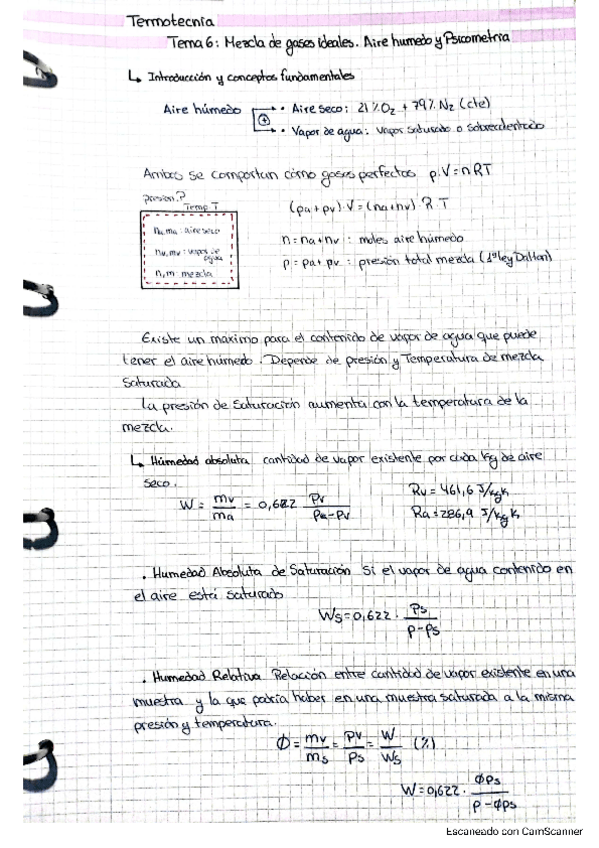 Termotecnia
Tema 6: Mezcla de gases ideales. Aire humedo y Psicometria
↳ Introducción y conceptos fundamentales
Aire húmedo
• Aire seco: 21% O₂ + 79% N₂ (cte)
• Vapor de agua: vapor saturado o sobrecalentado
Ambos se comportan como gases perfectos p·V=nRT
presion?
Temp T
na, ma: aire seco
nv, mv: vapor de agua
n, m: mezcla
(pa+pv)·V=(na+nv)·R·T
n=na+nv : moles aire húmedo
p=pa+pv : presión total mezcla (1ª ley Dalton)
Existe un máximo para el contenido de vapor de agua que puede
tener el aire húmedo. Depende de presión y Temperatura de mezcla
saturada
La presión de saturación aumenta con la temperatura de la
mezcla.
↳ Húmedad absoluta cantidad de vapor existente por cada kg de aire
seco.
W = mv/ma = 0,622 pv/pa-pv
Rv=461,6 J/kgK
Ra=286,9 J/kgK
. Humedad Absoluta de Saturación Si el vapor de agua contenido en
el aire está saturado
Ws=0,622· ps/p-ps
. Humedad Relativa Relación entre cantidad de vapor existente en una
muestra y la que podria haber en una muestra saturada a la misma
presión y temperatura.
Φ = mv/ms = pv/ps = W/Ws (%)
W=0,622· Φps/p-Φps
Escaneado con CamScanner